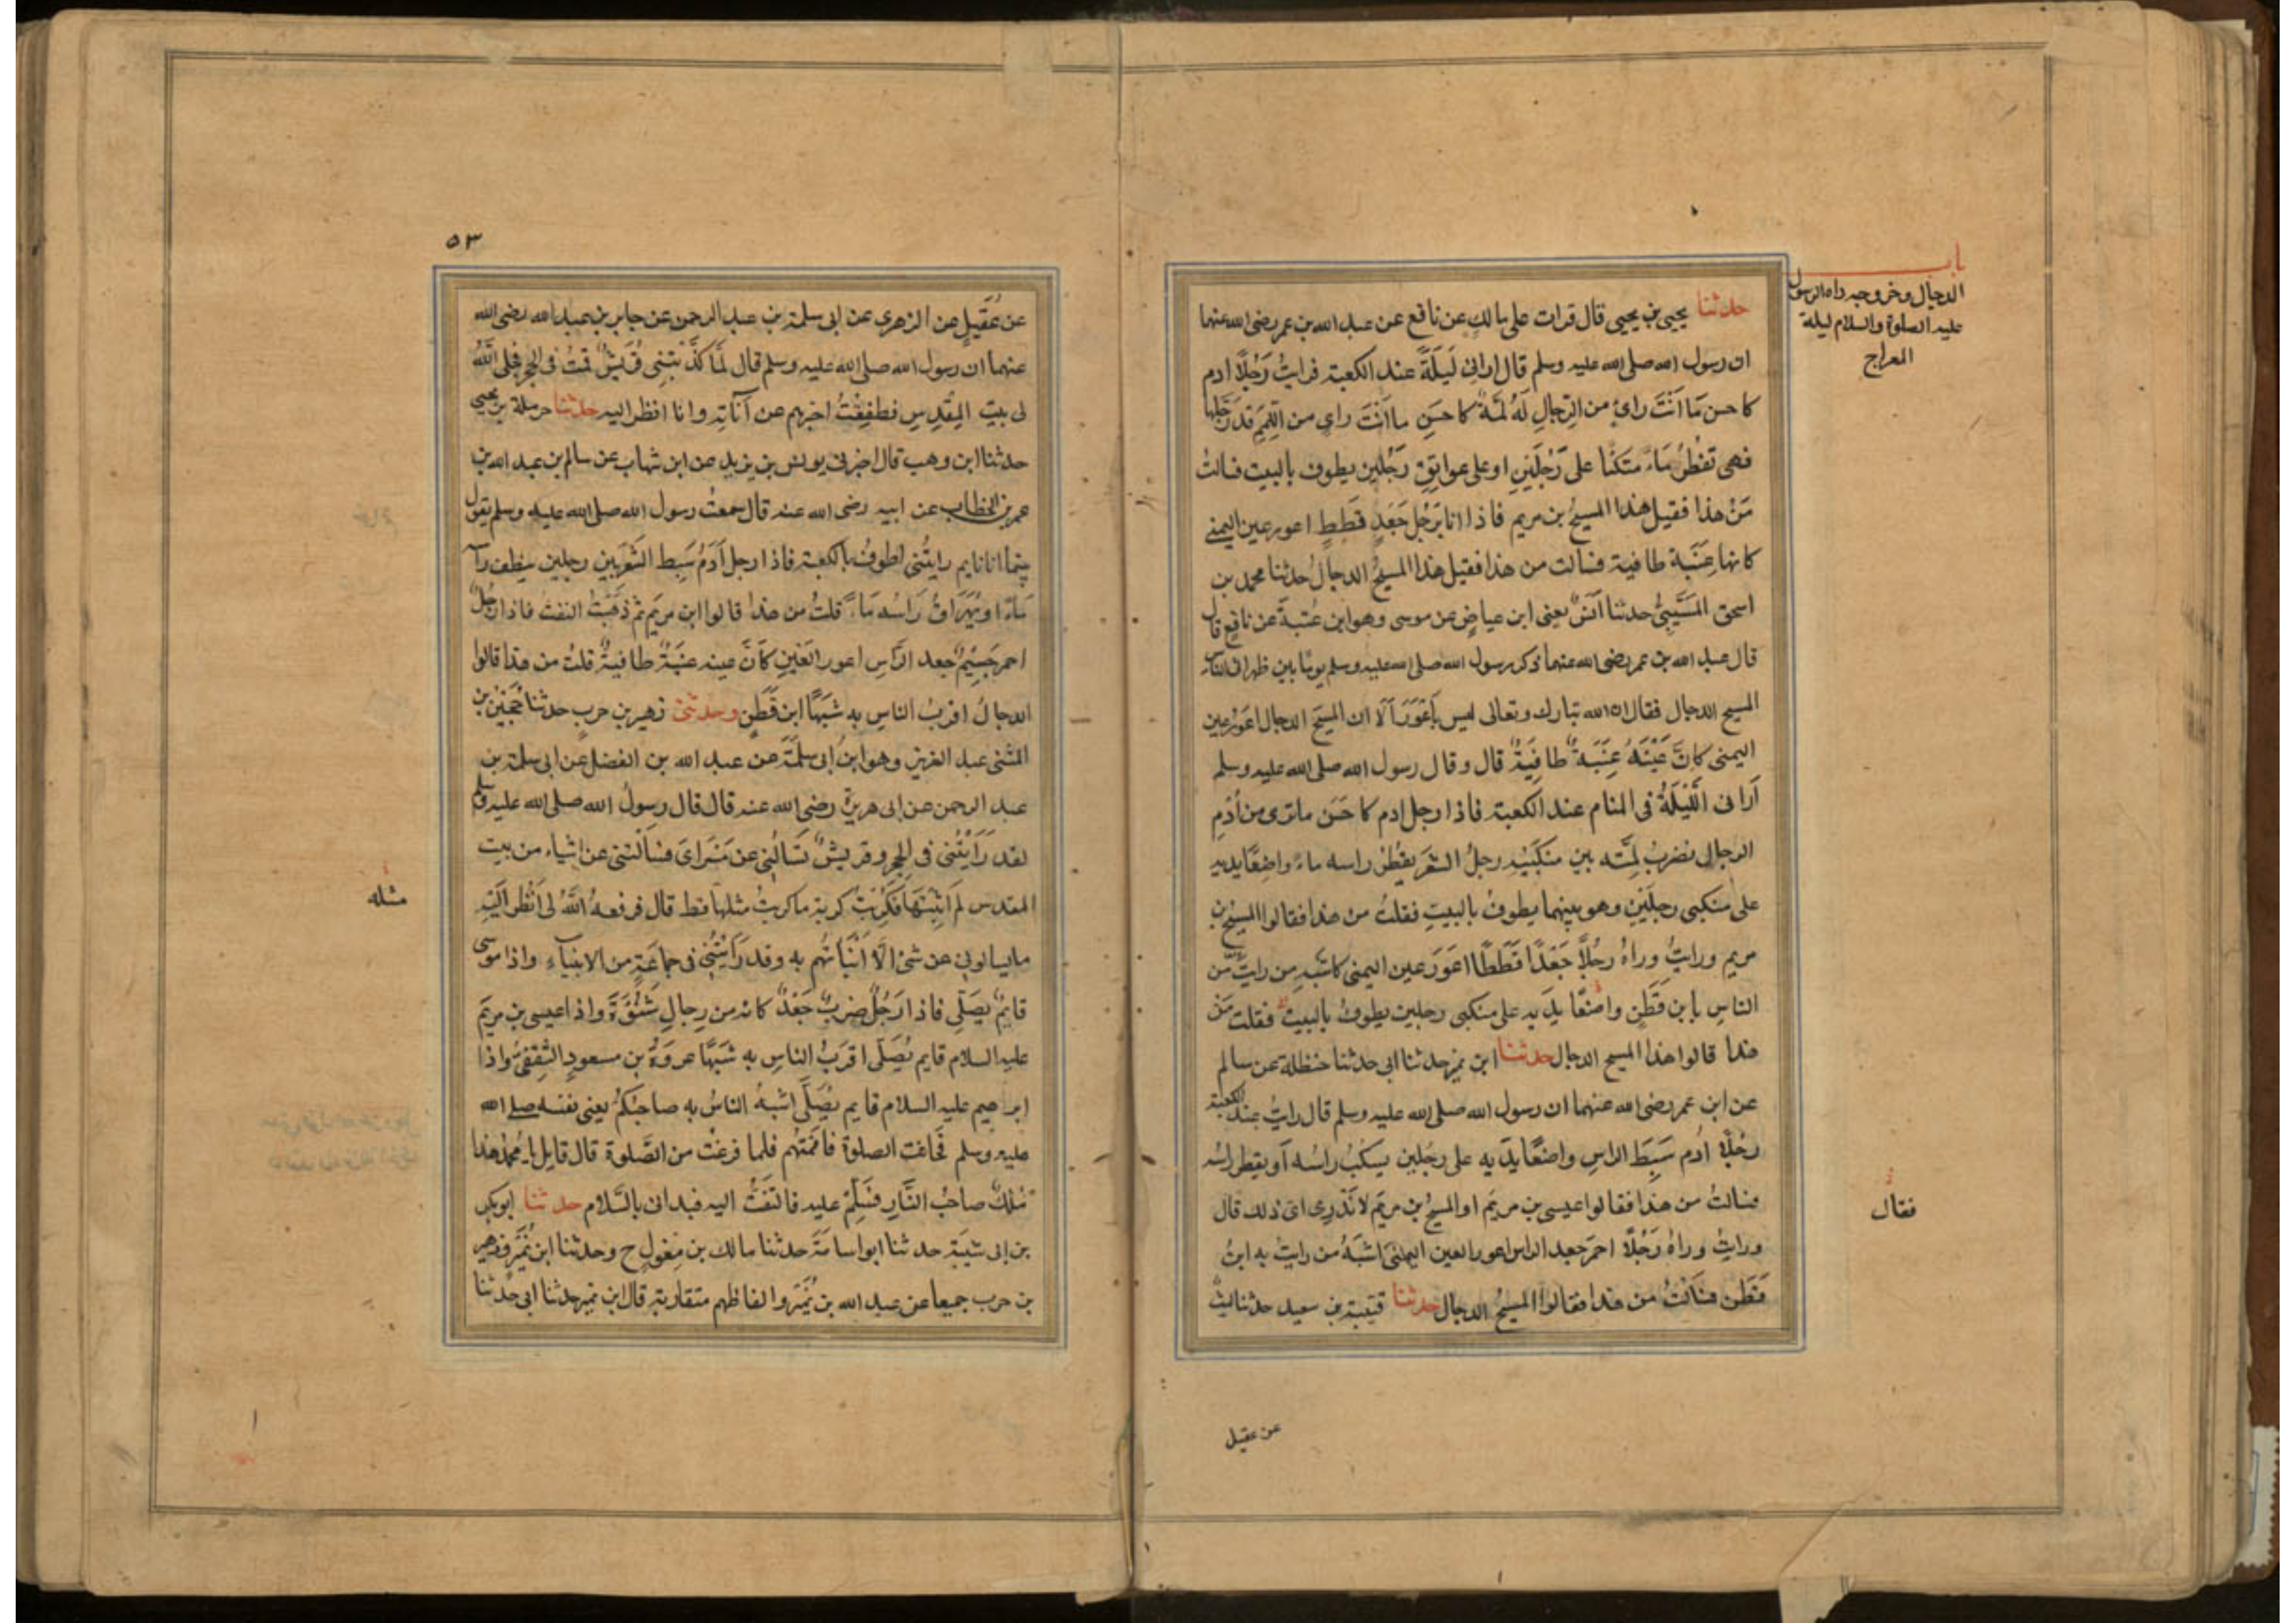 باب
الدجال وخروجه راه الرسول
عليه الصلوة والسلام ليلة
المعراج
حدثنا يحيى بن يحيى قال قرات على مالك عن نافع عن عبد الله بن عمر رضى الله عنهما
ان رسول الله صلى الله عليه وسلم قال ارانى لَيلَةً عند الكعبة فرايتُ رَجُلًا ادم
كاحسن مَا اَنتَ راىٍ من الرِجالِ لَهُ لِمَّةٌ كاحسَنِ ما اَنتَ راىٍ من اللِّمَمِ قد رَجَّلها
فهى تقطُرُ مَاءً متكئا على رَجُلَينِ او على عواتِقِ رَجُلين يطوف بالبيت فسالتُ
مَنْ هذا فقيل هذا المسيحُ بن مريم فاذا انا برَجُلٍ جَعْدٍ قَطَطٍ اعور عين اليمنى
كانها عِنَبَة طافية فسالت من هذا فقيل هذا المسيحُ الدجالُ حدثنا محمد بن
اسحق المُسَيَّبِىُّ حدثنا اَنَسٌ يعنى ابن عياضٍ عن موسى وهو ابن عُقبةَ عن نافِعٍ قال
قال عبد الله بن عمر رضى الله عنهما ذكر رسول الله صلى الله عليه وسلم يومًا بين ظهرانى الناس
المسيح الدجال فقال ان الله تبارك وتعالى ليس بِاَعْوَرَ اَلَا ان المسيحَ الدجال اعوَرُ عين
اليمنى كانَّ عَيْنَهُ عِنَبَةٌ طافِيَةٌ قال وقال رسول الله صلى الله عليه وسلم
اَرانى اللَّيْلَةَ فى المنام عند الكعبة فاذا رجل ادم كاحَسَن ماترى من اُدْمِ
الرجال تضربُ لِمَّته بين منكَبَيْه رجلُ الشَعَر يَقطُرُ راسه ماءً واضِعًا يديه
على منكبى رجلَينِ وهو بينهما يطوفُ بالبيتِ فقلتُ من هذا فقالوا المسيح بن
مريم ورايتُ وراهُ رجُلًا جَعْدًا قَطَطًا اعَوَرَ عين اليمنى كاشبَهِ من رايتُ من
الناسِ بابن قَطَنٍ واضعًا يدَيه على منكبى رجلين يطوفُ بالبيت فقلت مَنْ
هذا قالوا هذا المسيح الدجال حدثنا ابن نمير حدثنا ابى حدثنا حنظلة عن سالم
عن ابن عمر رضى الله عنهما ان رسول الله صلى الله عليه وسلم قال رايتُ عند الكعبة
رجُلًا اُدم سَبِطَ الراسِ واضعًا يدَيه على رجُلين يسكبُ راسُه اَو يقطر راسُه
فسالتُ من هذا فقالوا عيسى بن مريَم او المسيحُ بن مريَم لا نَدْرِى اىَّ ذلك قال
ورايتُ وراهُ رَجُلًا احمَر جَعد الراس اعور العين اليمنى اشبَهُ من رايتُ به ابنُ
قَطَن فسَاَلْتُ من هذا فقالوا المسيحُ الدجال حدثنا قتيبة بن سعيد حدثنا ليثٌ
فقال
عن عقيل
٥٣
عن عُقَيلٍ عن الزهرى عن ابى سلمة بن عبد الرحمن عن جابر بن عبد الله رضى الله
عنهما ان رسول الله صلى الله عليه وسلم قال لَمَّا كذَّبتنِى قُرَيشٌ قمتُ فى الحِجر فجلى اللهُ
لى بيتَ المقِدسِ فطفِقْتُ اخبرهم عن آياتِه وانا انظر اليه حدثنا حرملة بن يحيى
حدثنا ابن وهب قال اخبرنى يونس بن يزيد عن ابن شهاب عن سالم بن عبد الله بن
عمر بن الخطاب عن ابيه رضى الله عنه قال سمعتُ رسول الله صلى الله عليه وسلم يقول
بينما انا نايم رايتُنى اطوفُ بالكعبة فاذا رجل آدَمُ سَبِط الشَعَر بين رجلين ينطف راسه
مَاءً او يُهَرَاقُ رَاسُه مَاءً قلتُ من هذا قالوا ابن مريَم ثم ذهَبْتُ التفتُ فاذا رجُلٌ
احمر جَسِيمٌ جعد الرَّاسِ اعور العَينِ كاَنَّ عينه عِنَبَةٌ طافيةٌ قلتُ من هذا قالوا
الدجالُ اقربُ الناسِ به شبَهًا ابن قَطَنٍ وحدثنى زهير بن حربٍ حدثنا حُجَيْن بن
المثنى عبد العزيز وهو ابنُ ابى سلَمَةَ عن عبد الله بن الفضل عن ابى سلمة بن
عبد الرحمن عن ابى هريرة رضى الله عنه قال قال رسولُ الله صلى الله عليه وسلم
لقد رَاَيْتُنى فى الحِجر وقريشٌ تَسْاَلُنِى عن مَسْراىَ فساَلتنى عن اشياءَ من بيت
المقدس لَم اُثبِتهَا فكُرِبتُ كربة ماكربتُ مثلها قط قال فرفعهُ اللهُ لى اَنظُر اليَه
مايسالونى عن شئ الَّا اَنْبَاتُهُم به وقد رَاَيْتُنِى فى جماعَةٍ من الانبيَآءِ واذا موسى
قايمٌ يصَلِّى فاذا رَجُلٌ ضربٌ جَعْدٌ كانه من رِجالِ شَنُوَةَ واذا عيسى بن مريَم
عليه السلام قايم يُصَلِّى اقرَبُ الناسِ به شبَهًا عروَةُ بن مسعودٍ الثقفىُّ واذا
ابراهيم عليه السلام قايم يُصَلِّى اشبَهُ الناسُ به صاحبُكُم يعنى نفسَه صلى الله
عليه وسلم فحانت الصلوة فاَمَمْتُهُم فلما فرغتُ من الصَّلوة قال قايل يا محمدُ هذا
مٰلك صاحبُ النَّارِ فسَلِّمْ عليه فالتفَتُّ اليه فبدانى بالسَّلام حدثنا ابو بكر
بن ابى شيبَة حدثنا ابو اسامَةَ حدثنا مالك بن مِغولٍ ح وحدثنا ابن نُمَيْرٍ وزهير
بن حرب جميعا عن عبد الله بن نُمَيْرٍ والفاظهم متقاربة قال ابن نمير حدثنا ابى حدثنا
مثله